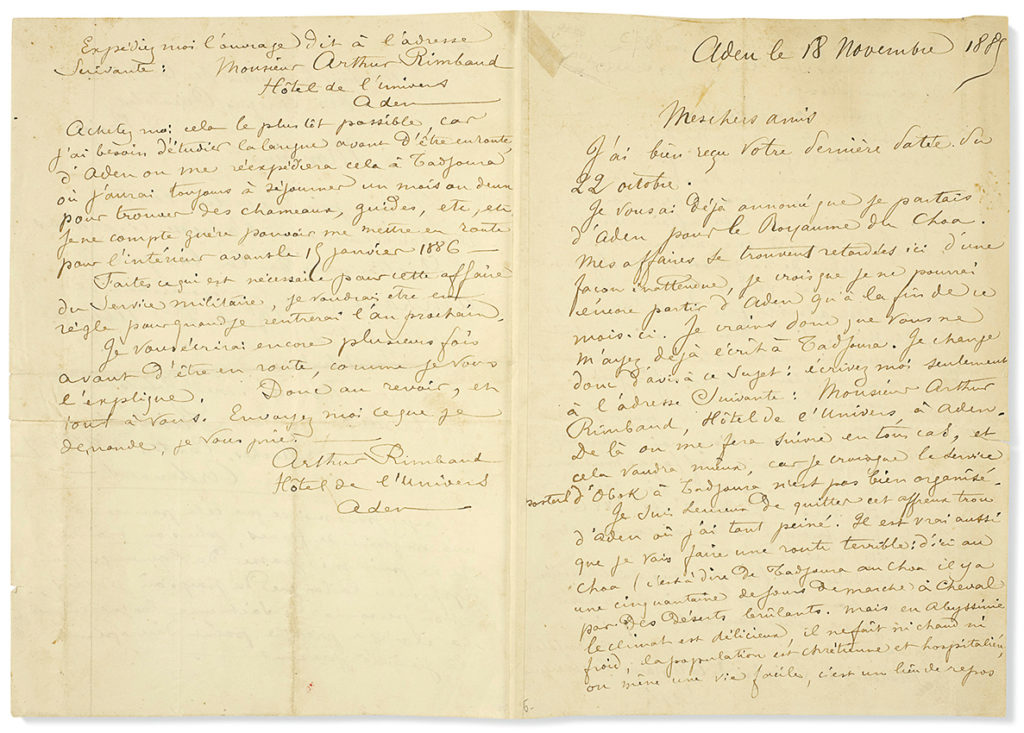 Aden le 18 Novembre 1885
Mes chers amis
J'ai bien reçu votre dernière datée du
22 octobre.
Je vous ai déjà annoncé que je partais
d'Aden pour le Royaume du Choa.
Mes affaires se trouvent retardées ici d'une
façon inattendue, je crois que je ne pourrai
encore partir d'Aden qu'à la fin de ce
mois-ci. Je crains donc que vous ne
m'ayez déjà écrit à Tadjoura. Je change
donc d'avis à ce sujet: écrivez moi seulement
à l'adresse suivante: Monsieur Arthur
Rimbaud, Hôtel de l'Univers, à Aden.
De là on me fera suivre en tous cas, et
cela vaudra mieux, car je crois que le service
postal d'Obok à Tadjoura n'est pas bien organisé.
Je suis heureux de quitter cet affreux trou
d'Aden où j'ai tant peiné. Il est vrai aussi
que je vais faire une route terrible: d'ici au
Choa (c'est à dire de Tadjoura au Choa il y a
une cinquantaine de jours de marche à cheval
par des déserts brûlants. Mais en Abyssinie
le climat est délicieux, il ne fait ni chaud ni
froid, la population est chrétienne et hospitalière,
on mène une vie facile, c'est un lieu de repos
Expédiez moi l'ouvrage dit à l'adresse
suivante: Monsieur Arthur Rimbaud
Hôtel de l'Univers
Aden
Achetez moi cela le plus tôt possible car
j'ai besoin d'étudier la langue avant d'être en route,
d'Aden on me réexpédiera cela à Tadjoura
où j'aurai toujours à séjourner un mois ou deux
pour trouver des chameaux, guides, etc, etc,
Je ne compte guère pouvoir me mettre en route
pour l'intérieur avant le 15 janvier 1886
Faites ce qui est nécessaire pour cette affaire
du Service militaire, je voudrais être en
règle pour quand je rentrerai l'an prochain.
Je vous écrirai encore plusieurs fois
avant d'être en route, comme je vous
l'explique. Donc au revoir, et
tout à vous. Envoyez moi ce que je
demande, je vous prie.
Arthur Rimbaud
Hôtel de l'Univers
Aden